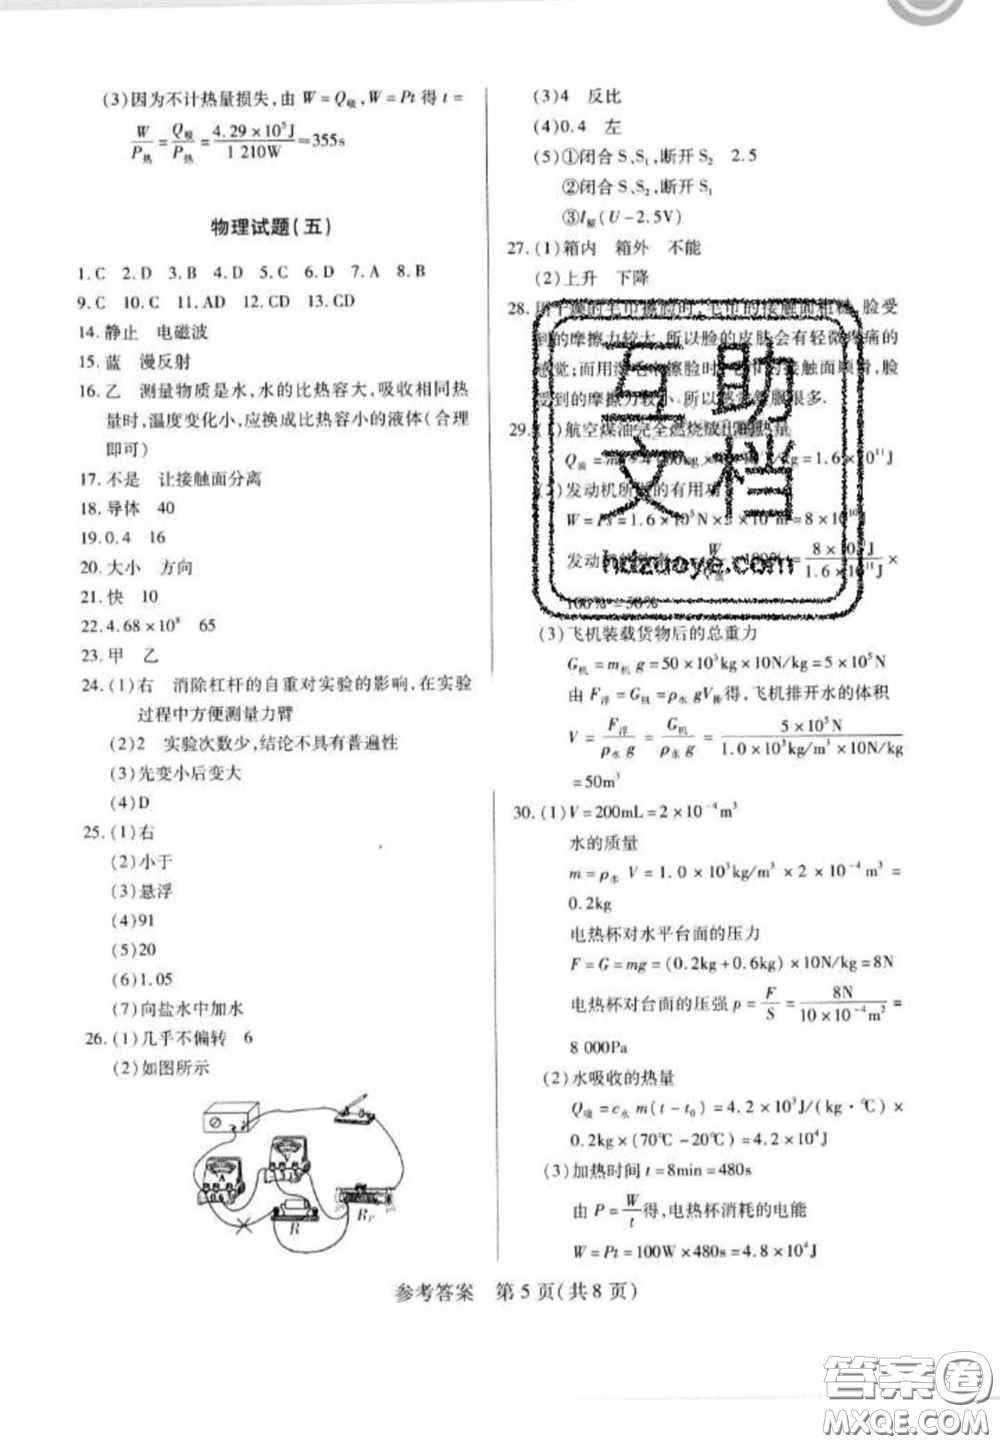 (3)因为不计热量损失,由 W=Q吸,W=Pt 得 t=
W/P热 = Q吸/P热 = 4.29×10⁵J/1 210W ≈355s
物理试题(五)
1.C 2.D 3.B 4.D 5.C 6.D 7.A 8.B
9.C 10.C 11.AD 12.CD 13.CD
14.静止 电磁波
15.蓝 漫反射
16.乙 测量物质是水,水的比热容大,吸收相同热
量时,温度变化小,应换成比热容小的液体(合理
即可)
17.不是 让接触面分离
18.导体 40
19.0.4 16
20.大小 方向
21.快 10
22.4.68×10⁸ 65
23.甲 乙
24.(1)右 消除杠杆的自重对实验的影响,在实验
过程中方便测量力臂
(2)2 实验次数少,结论不具有普遍性
(3)先变小后变大
(4)D
25.(1)右
(2)小于
(3)悬浮
(4)91
(5)20
(6)1.05
(7)向盐水中加水
26.(1)几乎不偏转 6
(2)如图所示
V
A
R
R_P
(3)4 反比
(4)0.4 左
(5)①闭合 S、S₁,断开 S₂ 2.5
②闭合 S、S₂,断开 S₁
③I额(U-2.5V)
27.(1)箱内 箱外 不能
(2)上升 下降
28.用干燥的毛巾擦脸时,毛巾的接触面粗糙,脸受
到的摩擦力较大,所以脸的皮肤会有轻微疼痛的
感觉;而用湿毛巾擦脸时,毛巾的接触面顺滑,脸
受到的摩擦力较小,所以感觉舒服很多.
29.(1)航空煤油完全燃烧放出的热量
Q放=m kg=1.6×10¹¹J
(2)发动机所做的有用功
W=Fs=1.6×10⁵N× m=8×10¹⁰J
发动机的 W ×100%= 8×10¹⁰J/1.6×10¹¹J ×
100%=50%
(3)飞机装载货物后的总重力
G机=m机 g=50×10³kg×10N/kg=5×10⁵N
由 F浮=G机=ρ水 gV排得,飞机排开水的体积
V= F浮/ρ水 g = G机/ρ水 g = 5×10⁵N/1.0×10³kg/m³×10N/kg
=50m³
30.(1)V=200mL=2×10⁻⁴m³
水的质量
m=ρ水 V=1.0×10³kg/m³×2×10⁻⁴m³=
0.2kg
电热杯对水平台面的压力
F=G=mg=(0.2kg+0.6kg)×10N/kg=8N
电热杯对台面的压强 p= F/S = 8N/10×10⁻⁴m² =
8 000Pa
(2)水吸收的热量
Q吸=c水 m(t-t₀)=4.2×10³J/(kg·℃)×
0.2kg×(70℃-20℃)=4.2×10⁴J
(3)加热时间 t=8min=480s
由 P= W/t 得,电热杯消耗的电能
W=Pt=100W×480s=4.8×10⁴J
互助
文档
hdzuoye.com
参考答案 第 5 页(共 8 页)
答案卷
MXQE.COM